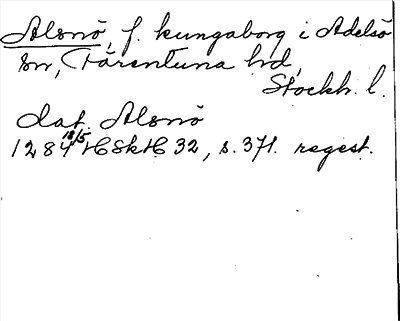 Alsnö, f. kungaborg i Adelsö
sn, Färentuna hd,
Stockh. l.
dat. Alsnö
1284 18/5 HSkH 32, s. 371. regest.